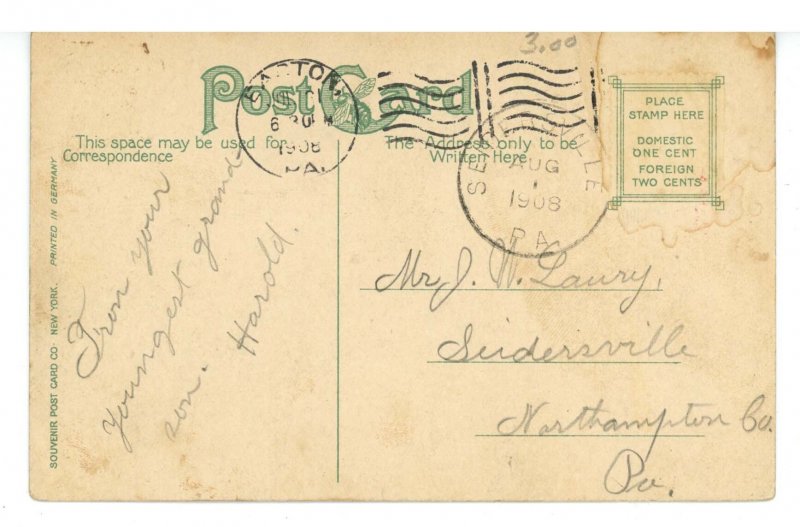 3.00
Post Card
EASTON,
6 30 PM
1908
PA.
SEIDERSVILLE
AUG
1
1908
PA.
PLACE
STAMP HERE
DOMESTIC
ONE CENT
FOREIGN
TWO CENTS
This space may be used for
Correspondence
The Address only to be
Written Here
From your
youngest grand-
son. Harold.
Mr J. W. Laury,
Seidersville
Northampton Co.
Pa.
SOUVENIR POST CARD CO. NEW YORK. PRINTED IN GERMANY